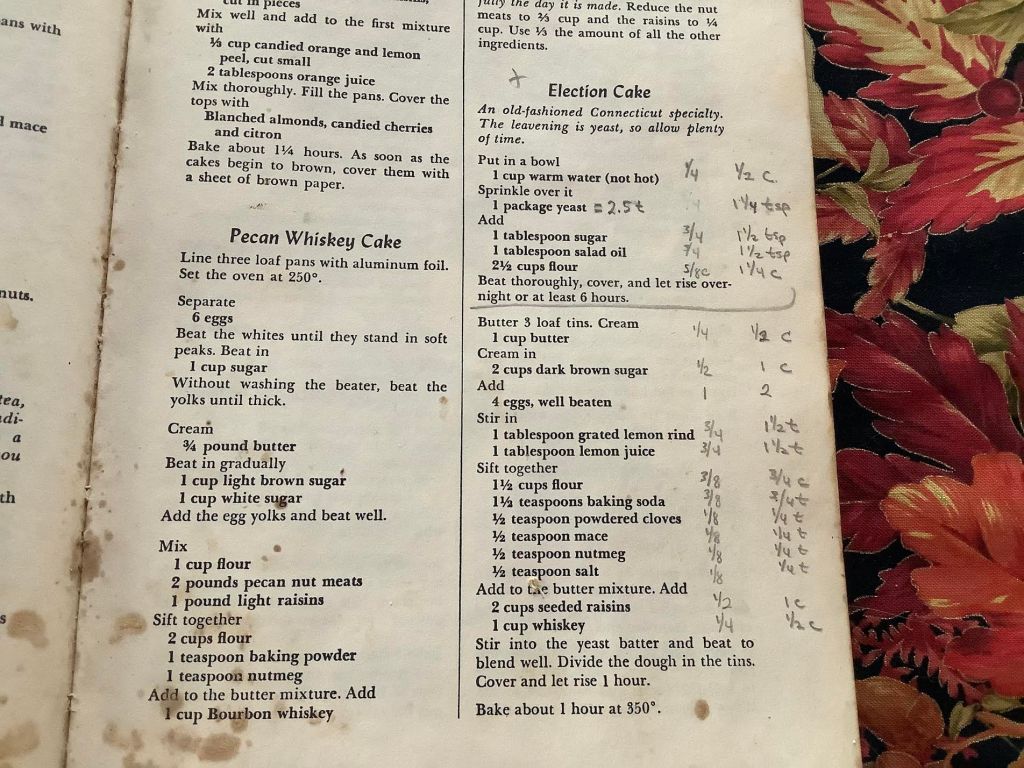 ans with
l mace
nuts.
tea,
di-
a
ou
th
s
cut in pieces
Mix well and add to the first mixture
with
⅓ cup candied orange and lemon
peel, cut small
2 tablespoons orange juice
Mix thoroughly. Fill the pans. Cover the
tops with
Blanched almonds, candied cherries
and citron
Bake about 1¼ hours. As soon as the
cakes begin to brown, cover them with
a sheet of brown paper.
Pecan Whiskey Cake
Line three loaf pans with aluminum foil.
Set the oven at 250°.
Separate
6 eggs
Beat the whites until they stand in soft
peaks. Beat in
1 cup sugar
Without washing the beater, beat the
yolks until thick.
Cream
¾ pound butter
Beat in gradually
1 cup light brown sugar
1 cup white sugar
Add the egg yolks and beat well.
Mix
1 cup flour
2 pounds pecan nut meats
1 pound light raisins
Sift together
2 cups flour
1 teaspoon baking powder
1 teaspoon nutmeg
Add to the butter mixture. Add
1 cup Bourbon whiskey
fully the day it is made. Reduce the nut
meats to ⅔ cup and the raisins to ¼
cup. Use ⅓ the amount of all the other
ingredients.
+
Election Cake
An old-fashioned Connecticut specialty.
The leavening is yeast, so allow plenty
of time.
Put in a bowl
1 cup warm water (not hot) ¼ ½ c.
Sprinkle over it
1 package yeast = 2.5 t 1¼ tsp
Add
1 tablespoon sugar ¾ 1½ tsp
1 tablespoon salad oil 1½ tsp
2½ cups flour 5/8 c 1¼ c
Beat thoroughly, cover, and let rise over-
night or at least 6 hours.
Butter 3 loaf tins. Cream
1 cup butter ¼ ½ c
Cream in
2 cups dark brown sugar ½ 1 c
Add
4 eggs, well beaten 1 2
Stir in
1 tablespoon grated lemon rind 3/4 1½ t
1 tablespoon lemon juice 3/4 1½ t
Sift together
1½ cups flour 3/8 3/4 c
1½ teaspoons baking soda 3/8 3/4 t
½ teaspoon powdered cloves 1/8 ¼ t
½ teaspoon mace 1/8 ¼ t
½ teaspoon nutmeg 1/8 ¼ t
½ teaspoon salt 1/8 ¼ t
Add to the butter mixture. Add
2 cups seeded raisins ½ 1 c
1 cup whiskey ¼ ½ c
Stir into the yeast batter and beat to
blend well. Divide the dough in the tins.
Cover and let rise 1 hour.
Bake about 1 hour at 350°.